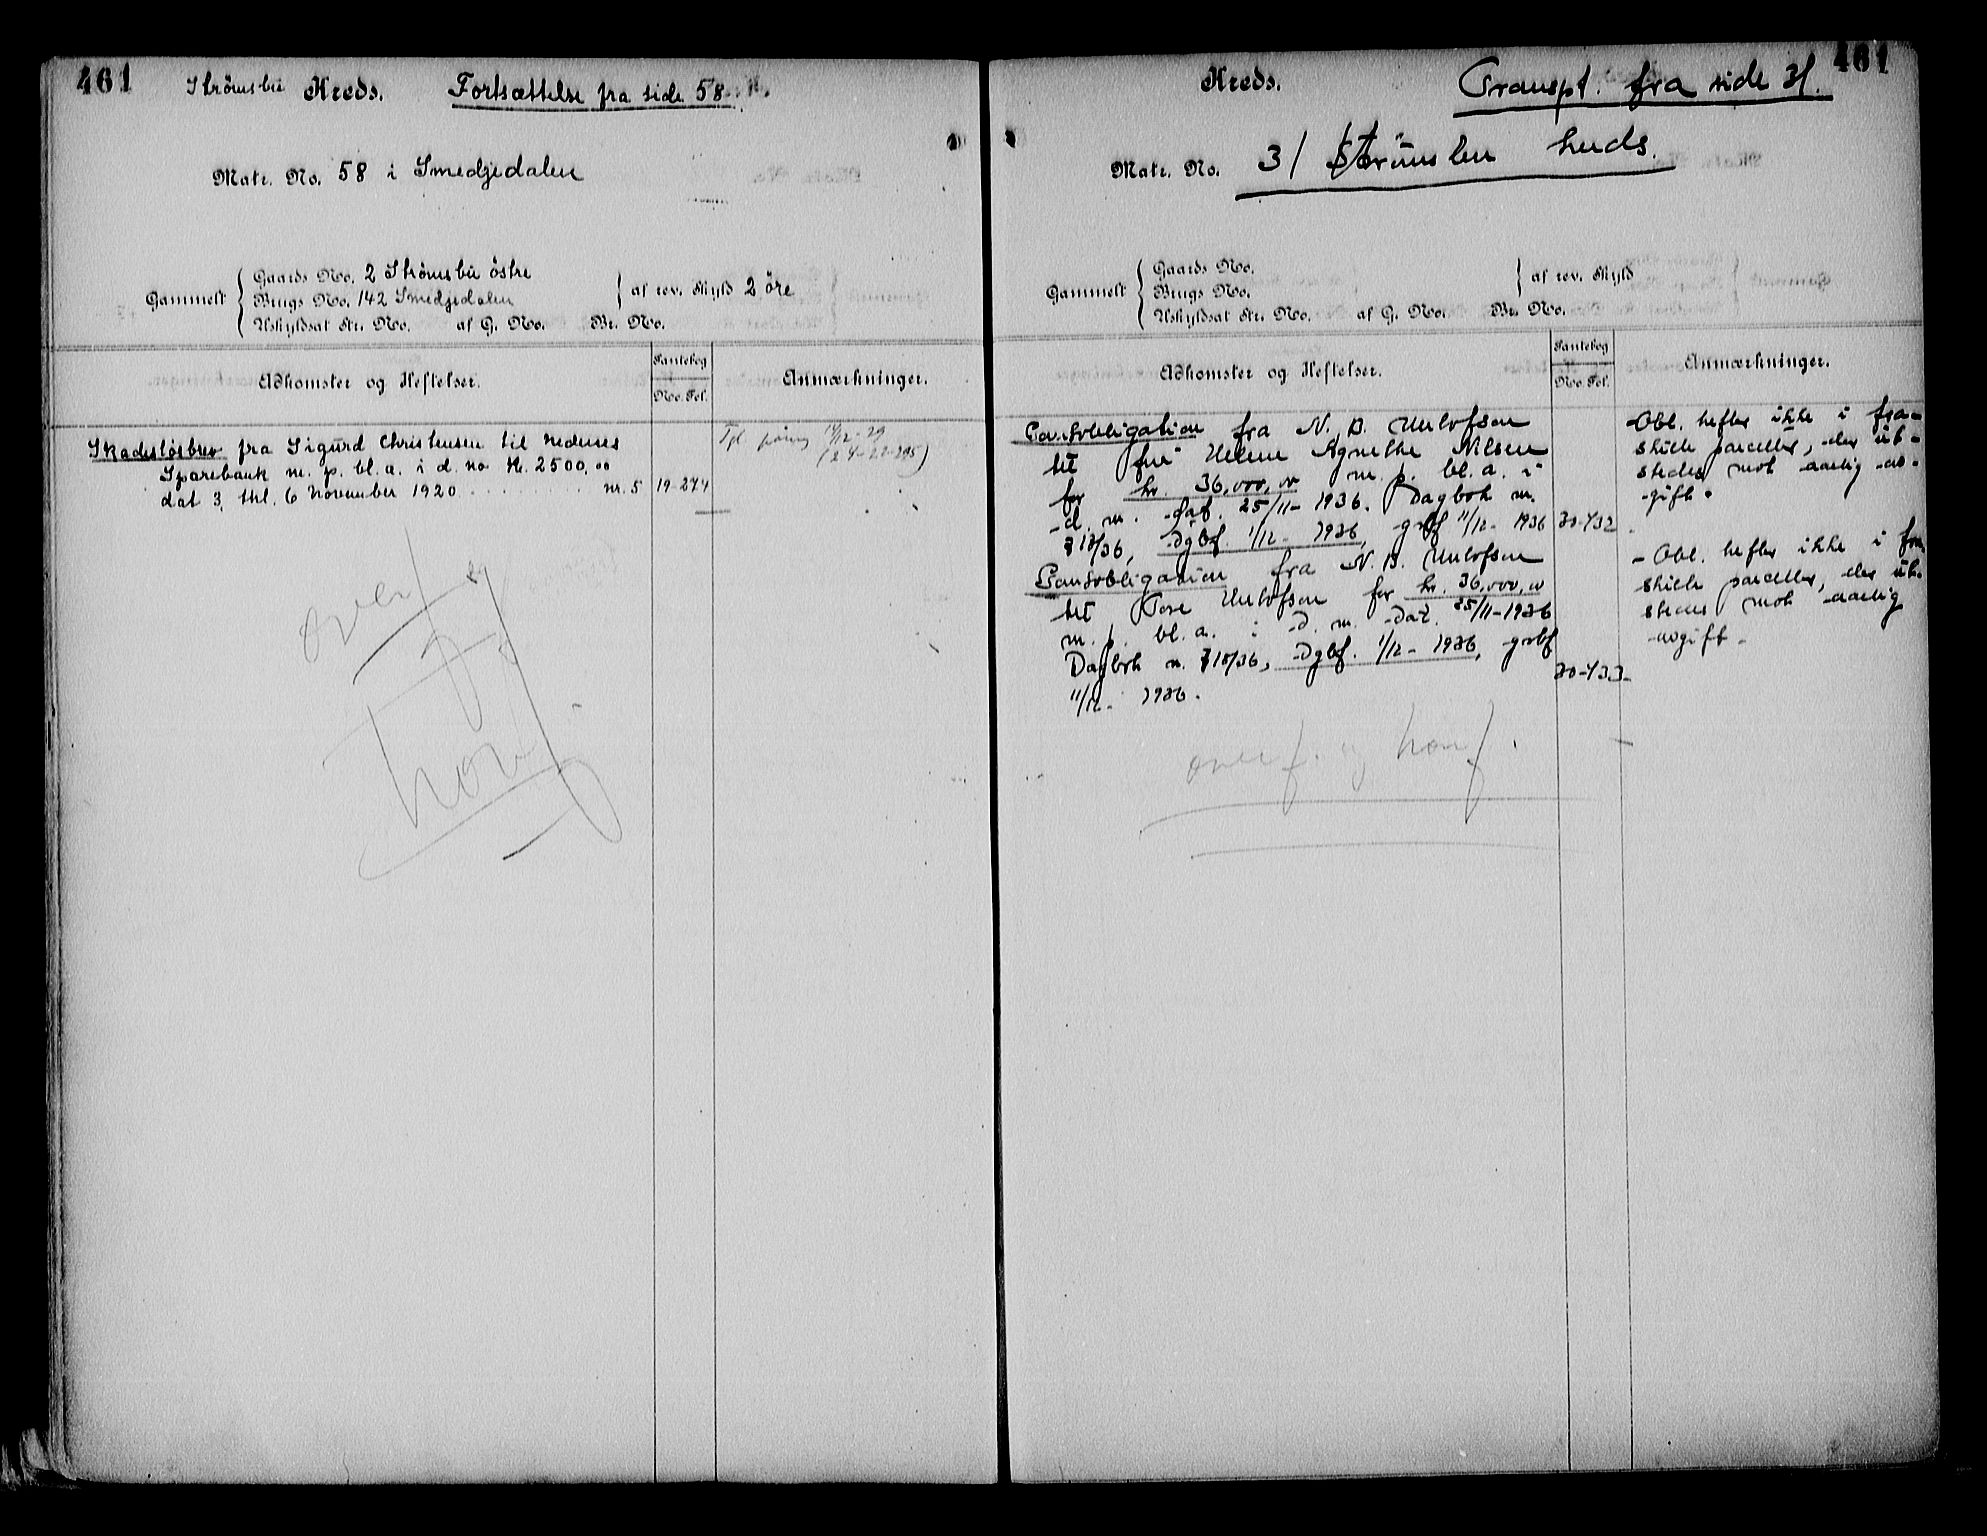 461
Strømsbu Kreds. Fortsættelse fra side 58
Matr. No. 58 i Smedjedalen
Gammelt
Gaards No. 2 Strømsbu østre
Brugs No. 142 Smedjedalen
Uskyldsat Str. No. af G. No. Br. No.
af rev. Skyld 2 öre
Adkomster og Heftelser.
Pantebog
No. Fol.
Anmærkninger.
Skadesløsbrev fra Sigurd Christensen til Nedenes
Sparebank m. p. bl. a. i d. no Kr. 2500,00
dat 3, thl. 6 November 1920 nr. 5 19-274
-29
over og
konf
461
Kreds. Transpt. fra side 31.
Matr. No. 31 Strømsbu kreds.
Gammelt
Gaards No.
Brugs No.
Uskyldsat Str. No. af G. No. Br. No.
af rev. Skyld
Adkomster og Heftelser.
Pantebog
No. Fol.
Anmærkninger.
Pantobligation fra N. B.
til fru Helene Agnethe Nilsen
for kr. 36,000,00 m. p. bl. a. i
d. m. dat. 25/11-1936. Dagbok nr.
/36, Dgbf. 1/12-1936, grbf 11/12-1936 20-432
Pantobligation fra N. B.
til Tore for kr. 36,000,00
m. p. bl. a. i d. m. dat. 25/11-1936
Dagbok nr. /36, Dgbf. 1/12-1936, grbf
11/12-1936. 20-433
Obl. hefter ikke i fra-
skilte parceller, der ut-
stedes mot aarlig av-
gift.
Obl. hefter ikke i fra
skilte parceller, der ut-
stedes mot aarlig
avgift
overf. og konf.